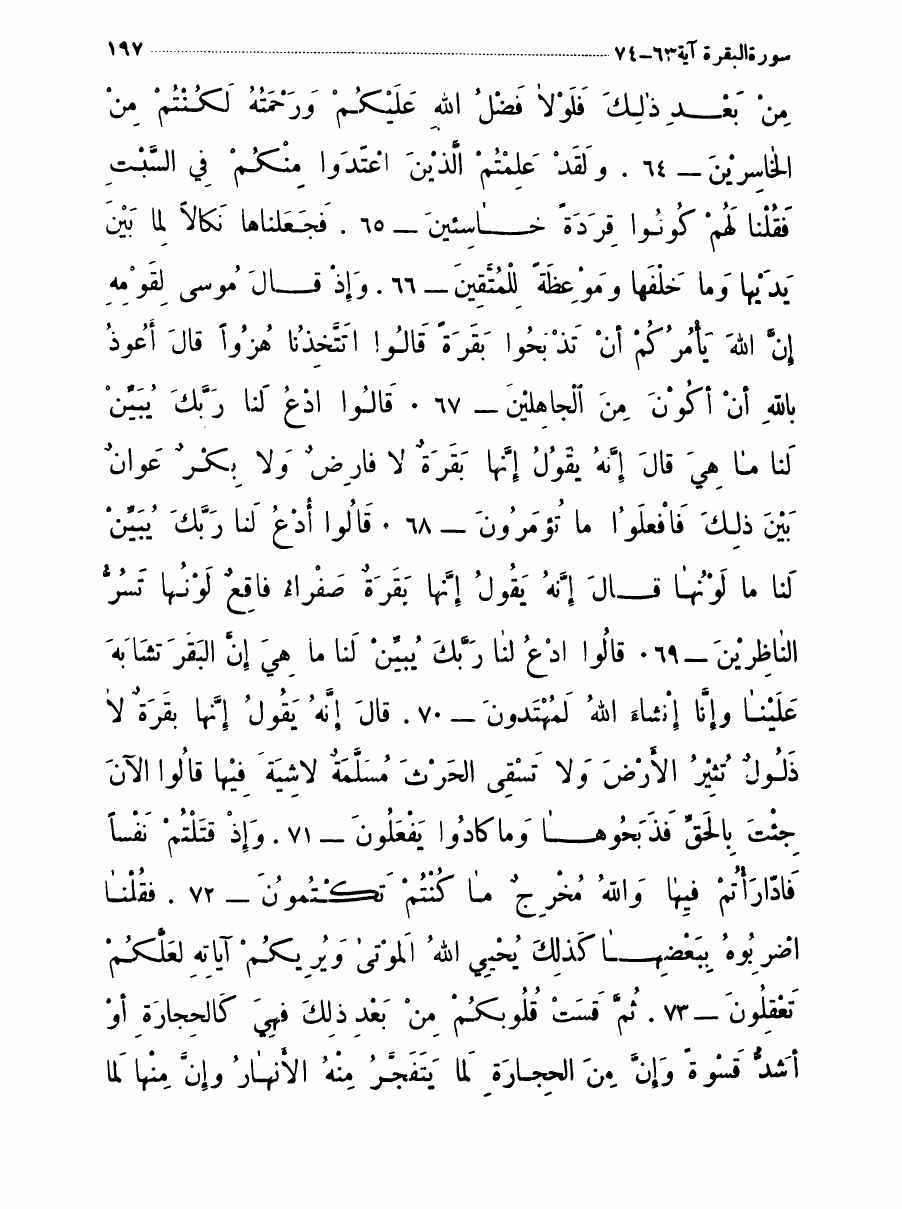 سورة البقرة آية ٦٣-٧٤ ........ ١٩٧
مِنْ بَعْـــدِ ذٰلِكَ فَلَوْلاٰ فَضْلُ اللهِ عَلَيْكُمْ وَرَحْمَتُهُ لَكُنْتُمْ مِنْ
الخٰاسِرِيْنَ ــ ٦٤ . وَلَقَدْ عَلِمْتُمْ الَّذِيْنَ اعْتَدَوا مِنْكُمْ فِي السَّبْتِ
فَقُلْنا لَهُمْ كُونُوا قِرَدَةً خـــاسِئينَ ــ ٦٥ . فَجَعَلناها نَكالاً لِما بَيْنَ
يَدَيْها وَما خَلْفَها وَمَوْعِظَةً لِلْمُتَّقِينَ ــ ٦٦ . وَإِذْ قـــالَ مُوسى لِقَوْمِهِ
إِنَّ اللهَ يَأْمُرُكُمْ أَنْ تَذْبَحُوا بَقَرَةً قَالُوا اتَتَّخِذُنا هُزُواً قالَ أَعُوذُ
بِاللهِ أَنْ أَكُوْنَ مِنَ الْجاهِلِيْنَ ــ ٦٧ . قَالُوا ادْعُ لَنا رَبَّكَ يُبَيِّنْ
لَنا ما هِيَ قالَ إِنَّهُ يَقُوْلُ إِنَّها بَقَرَةٌ لا فارِضٌ وَلا بِكْرٌ عَوانٌ
بَيْنَ ذلِكَ فَافْعَلُوا ما تُؤمَرُونَ ــ ٦٨ . قَالُوا أُدْعُ لَنا رَبَّكَ يُبَيِّنْ
لَنا ما لَوْنُها قـــالَ إِنَّهُ يَقُولُ إِنَّها بَقَرَةٌ صَفْراءُ فاقِعٌ لَوْنُها تَسُرُّ
النٰاظِرِيْنَ ــ ٦٩ . قالُوا ادْعُ لَنٰا رَبَّكَ يُبَيِّنْ لَنا ما هِيَ إِنَّ البَقَرَ تَشٰابَهَ
عَلَيْنا وَإِنَّا إِنْشاءَ اللهُ لَمُهْتَدونَ ــ ٧٠ . قالَ إِنَّهُ يَقُولُ إِنَّها بَقَرَةٌ لاٰ
ذَلُولٌ تُثِيْرُ الأَرْضَ وَلا تَسْقي الحَرْثَ مُسَلَّمَةٌ لاشِيَةَ فِيْها قالُوا الآنَ
جِئْتَ بِالحَقِّ فَذَبَحُوهـــا وَما كادُوا يَفْعَلُونَ ــ ٧١ . وَإِذْ قَتَلْتُمْ نَفْساً
فَادّارَأْتُمْ فِيها وَاللهُ مُخْرِجٌ ما كُنْتُمْ تَكْتُمونَ ــ ٧٢ . فَقُلْنا
اضْرِبُوهُ بِبَعْضِهـــا كَذلِكَ يُحْيِي اللهُ المَوْتىٰ وَيُرِيكُمْ آياتِهِ لَعَلَّكُمْ
تَعْقِلُونَ ــ ٧٣ . ثُمَّ قَسَتْ قُلُوبكُمْ مِنْ بَعْدِ ذلِكَ فَهِيَ كَالحِجارَةِ أَوْ
أَشَدُّ قَسْوَةً وَإِنَّ مِنَ الحِجارَةِ لَما يَتَفَجَّرُ مِنْهُ الأَنهٰارُ وإِنَّ مِنْها لَما